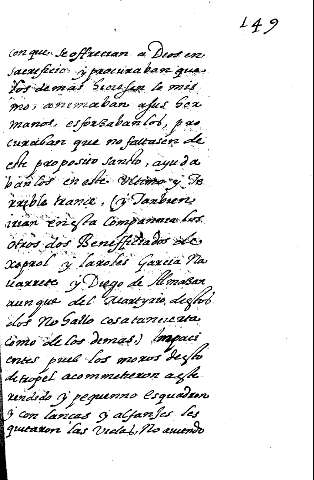 149
con que se offrecian a Dios en
sacrificio y procuraban que
los demas hiciesen lo mis
mo, animaban a sus her
manos, esforzabanlos, pro
curaban que no faltasen de
este proposito santo, ayuda
banlos en este ultimo y Te
rrible trance, (y Tambien
irian en esta Compannia los
otros dos Beneffitiados de
y laroles Garcia Na
uarrete y Diego de Almazan
aunque del Martyrio destos
dos No hallo cosa tan cierta
como de los demas,) Impaci
entes pues los moros desto
de tropel acommetieron a este
rendido y pequenno esquadron
y con lanças y alfanjes les
quitaron las vidas, No auiendo